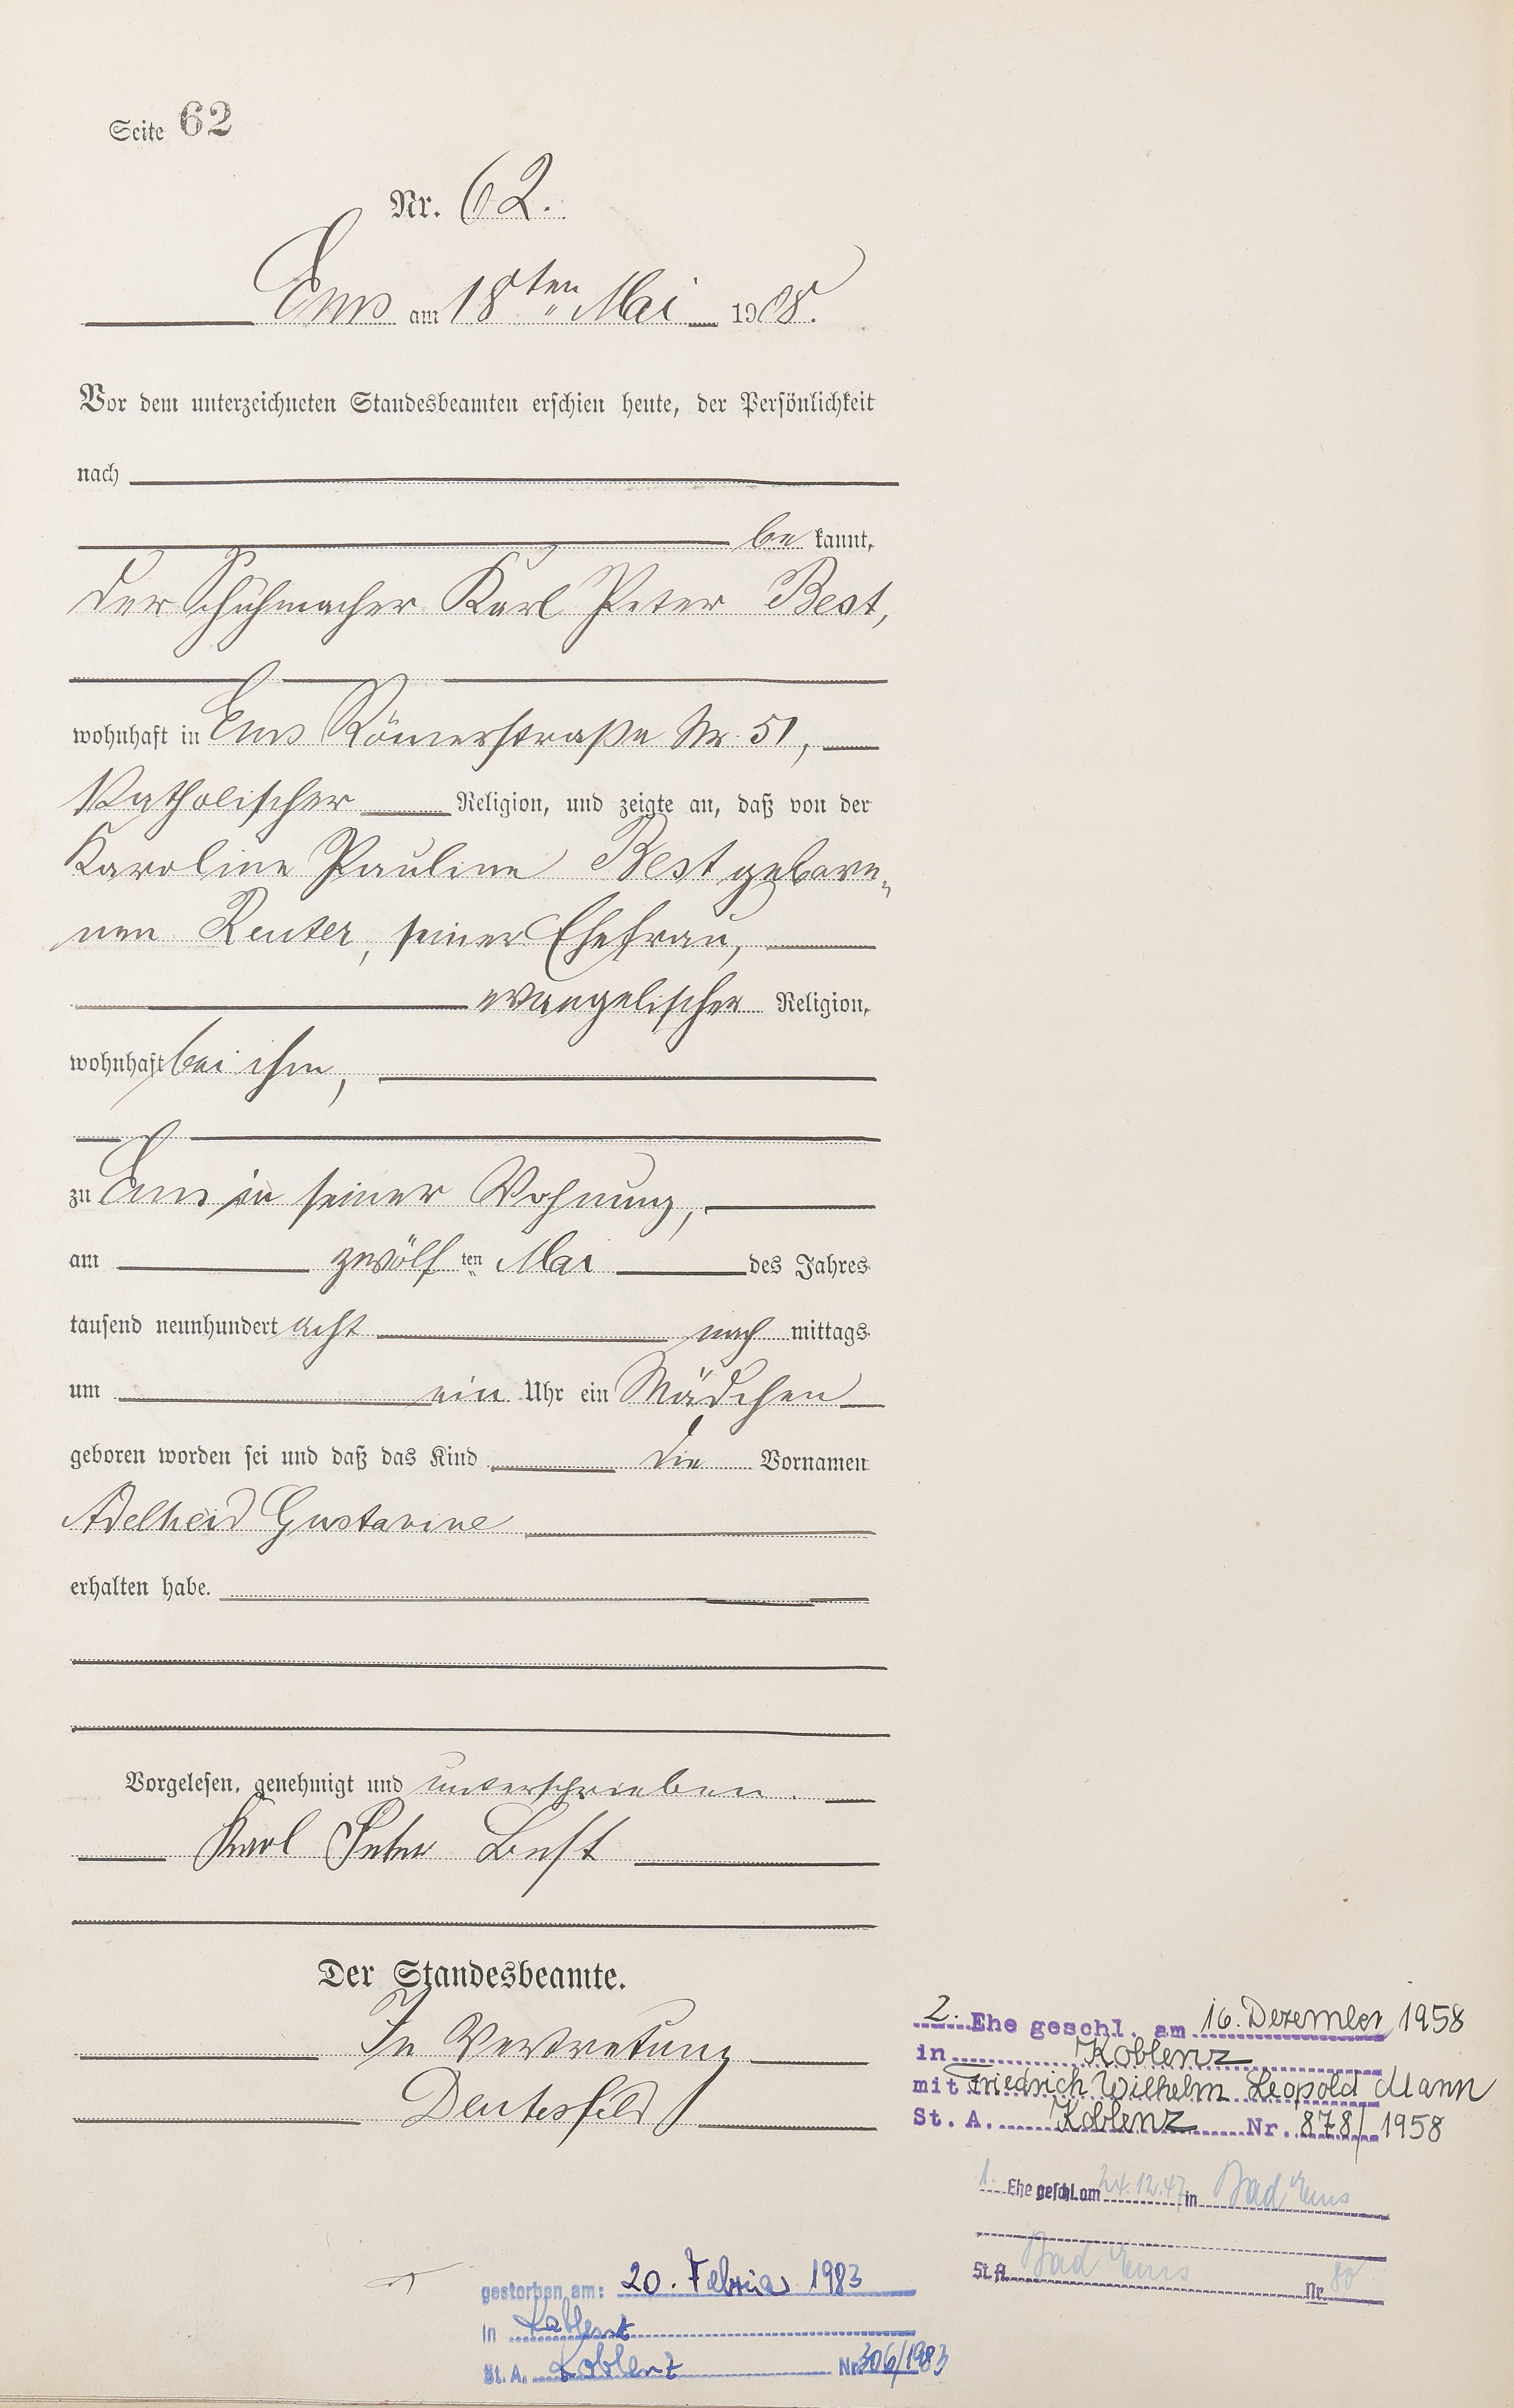 Seite 62
Nr. 62.
Ems am 18ten Mai 1908.
Vor dem unterzeichneten Standesbeamten erschien heute, der Persönlichkeit
nach
be kannt,
der Schuhmacher Karl Peter Best,
wohnhaft in Ems Römerstraße Nr. 51,
Katholischer Religion, und zeigte an, daß von der
Karoline Pauline Best gebore-
nen Reuter, seiner Ehefrau,
evangelischer Religion,
wohnhaft bei ihm,
zu Ems in seiner Wohnung,
am zwölf ten Mai des Jahres
tausend neunhundert acht nach mittags
um ein Uhr ein Mädchen
geboren worden sei und daß das Kind die Vornamen
Adelheid Gustavine
erhalten habe.
Vorgelesen, genehmigt und unterschrieben.
Karl Peter Best
Der Standesbeamte.
In Vertretung
2. Ehe geschl. am 16. Dezember 1958
in Koblenz
mit Friedrich Wilhelm Leopold Mann
St. A. Koblenz Nr. 878/1958
1. Ehe geschl. am 24.12.47 in Bad Ems
St. A. Bad Ems Nr. 80
gestorben am: 20. Februar 1983
in Koblenz
St. A. Koblenz Nr. 306/1983